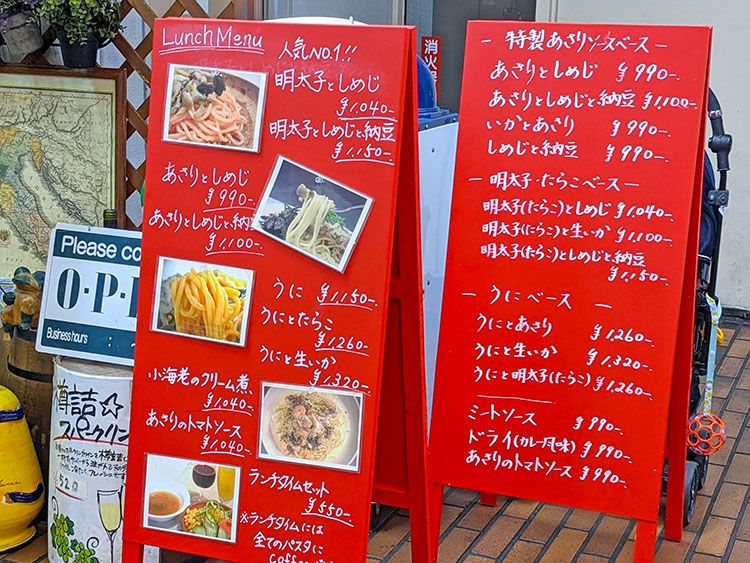 Lunch Menu
人気NO.1!!
明太子としめじ
¥1,040-
明太子としめじと納豆
¥1,150-
あさりとしめじ
¥990-
あさりとしめじと納豆
¥1,100-
うに ¥1,150-
うにとたらこ
¥1,260-
うにと生いか
¥1,320-
小海老のクリーム煮
¥1,040-
あさりのトマトソース
¥1,040-
ランチタイムセット
¥550-
※ランチタイムには
全てのパスタに
Coffee
- 特製あさりソースベース -
あさりとしめじ ¥990-
あさりとしめじと納豆 ¥1,100-
いかとあさり ¥990-
しめじと納豆 ¥990-
- 明太子・たらこベース -
明太子(たらこ)としめじ ¥1,040-
明太子(たらこ)と生いか ¥1,100-
明太子(たらこ)としめじと納豆
¥1,150-
- うにベース -
うにとあさり ¥1,260-
うにと生いか ¥1,320-
うにと明太子(たらこ) ¥1,260-
ミートソース ¥990-
ドライ(カレー風味) ¥990-
あさりのトマトソース ¥990-
消火
Please co
O·P·
Business hours
樽詰☆
スパークリン
520